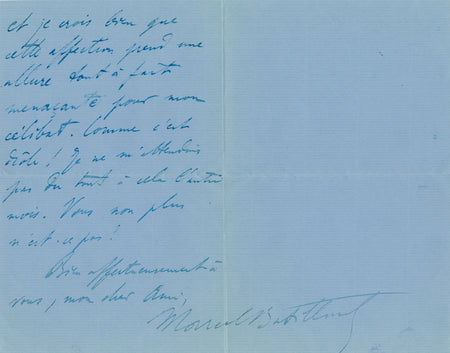 et je crois bien que
cette affection prend une
allure tout à fait
menaçante pour mon
célibat. Comme c'est
drôle ! Je ne m'attendais
pas du tout à cela l'autre
mois. Vous non plus
n'est-ce pas ?
Bien affectueusement à
vous, mon cher Ami,
Marcel